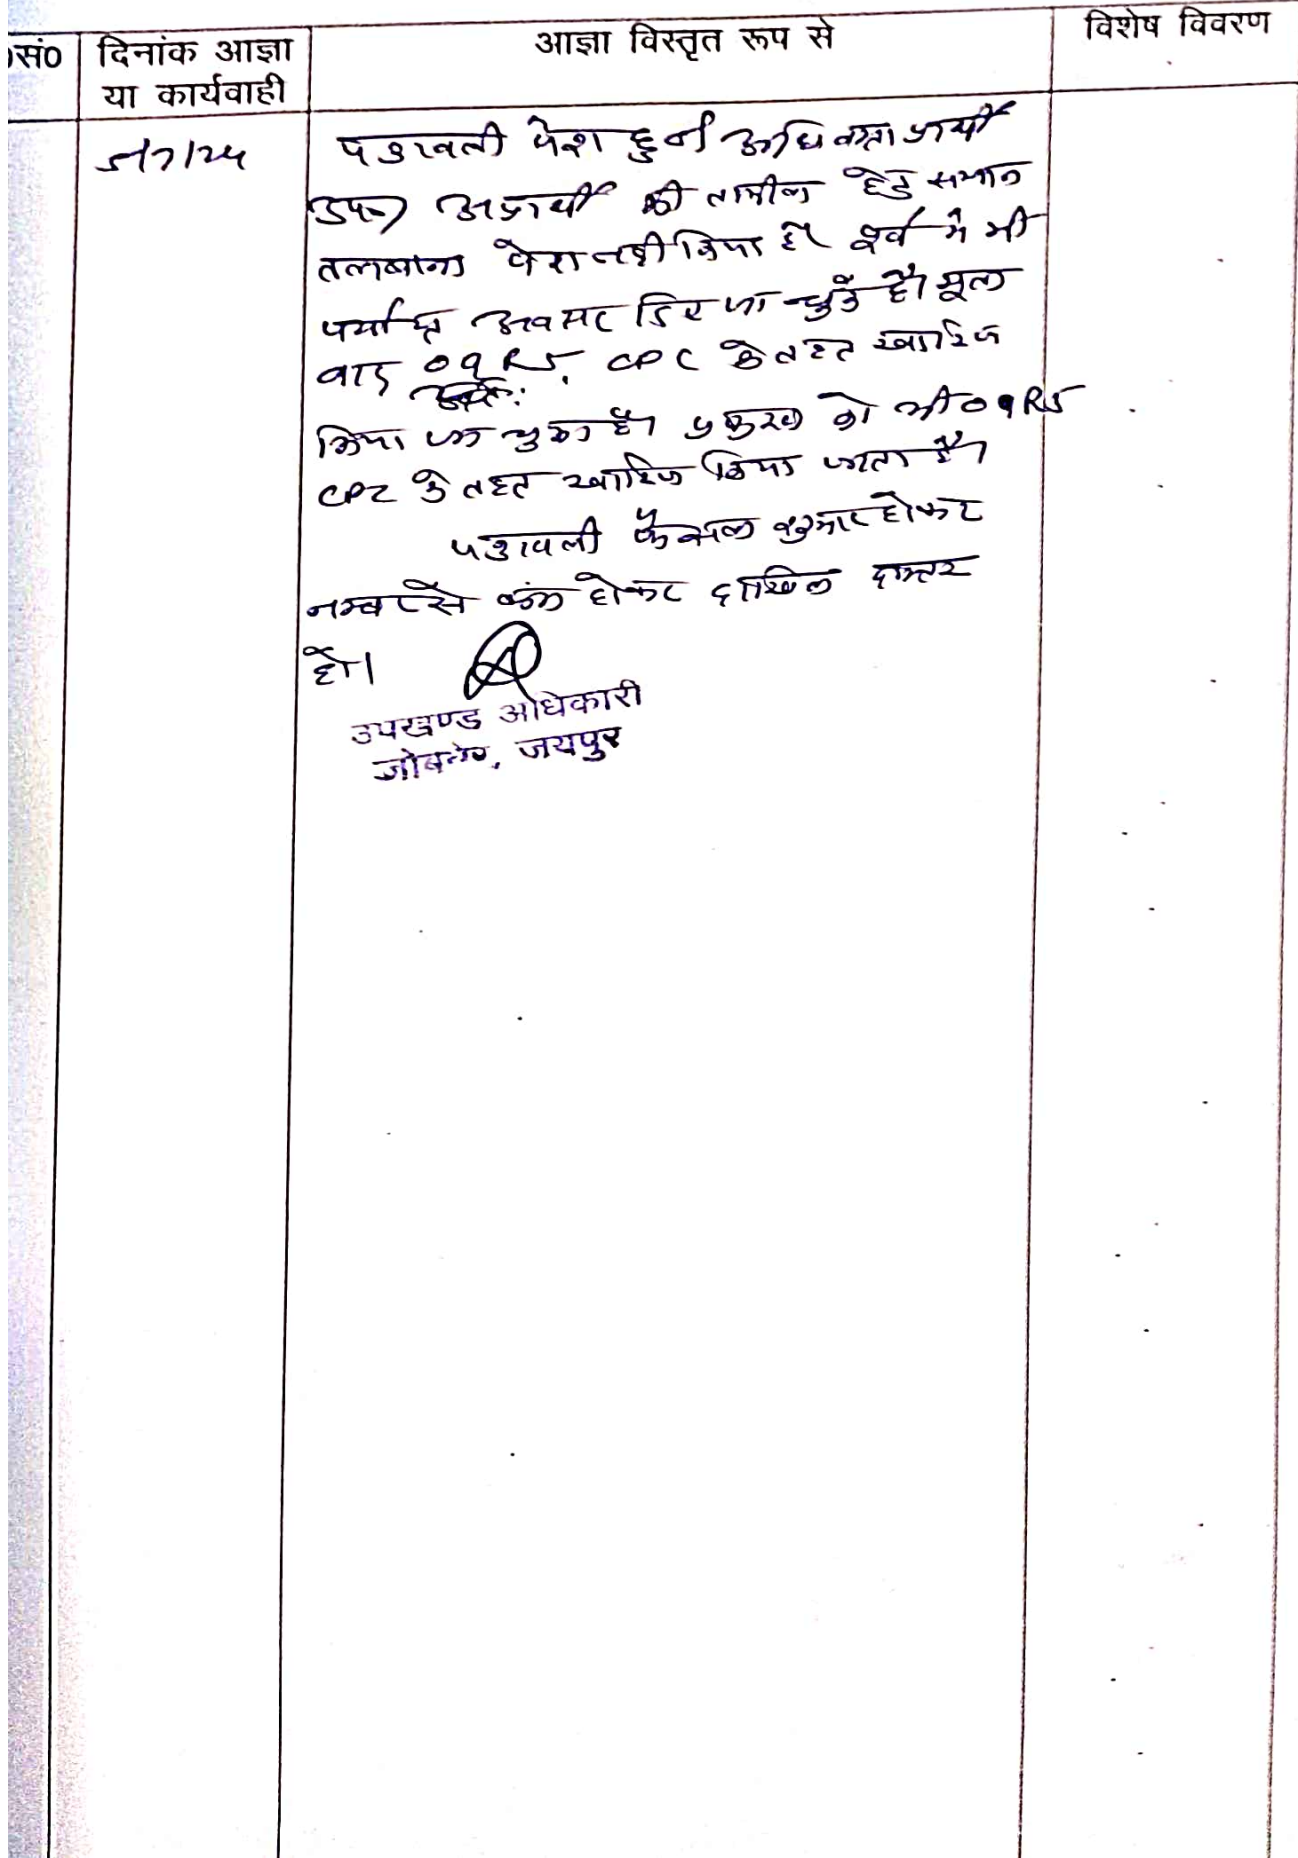 सं0 दिनांक आज्ञा या कार्यवाही आज्ञा विस्तृत रूप से विशेष विवरण
5/7/24 पत्रावली पेश हुई अधिवक्ता प्रार्थी
उप0 अप्रार्थी की तामील हेतु सम्मन
तलबाना पेश नही किया है। पूर्व मे भी
पर्याप्त अवसर दिए जा चुके है। मूल
वाद O9R5 CPC के तहत खारिज
किया जा चुका है। प्रकरण को भी O9R5
CPC के तहत खारिज किया जाता है।
पत्रावली फैसल शुमार होकर
नम्बर से कम होकर दाखिल दफ्तर
हो।
उपखण्ड अधिकारी
जोबनेर, जयपुर